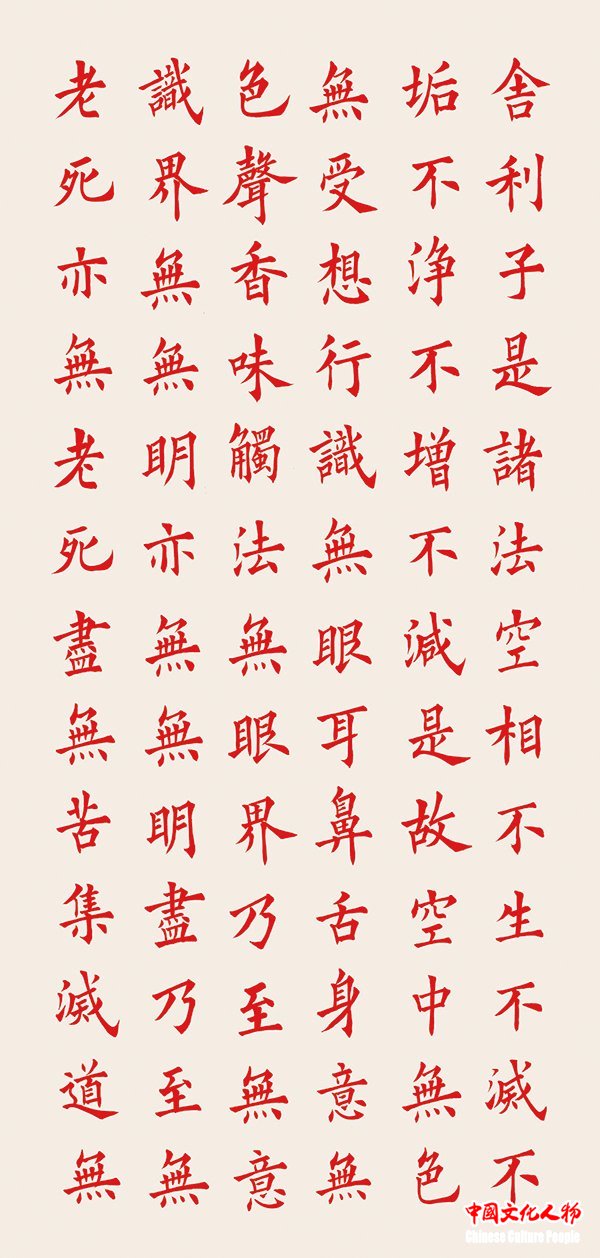 舎利子是諸法空相不生不滅不
垢不浄不增不減是故空中無色
無受想行識無眼耳鼻舌身意無
色聲香味觸法無眼界乃至無意
識界無無明亦無無明盡乃至無
老死亦無老死盡無苦集滅道無
中國文化人物
Chinese Culture People